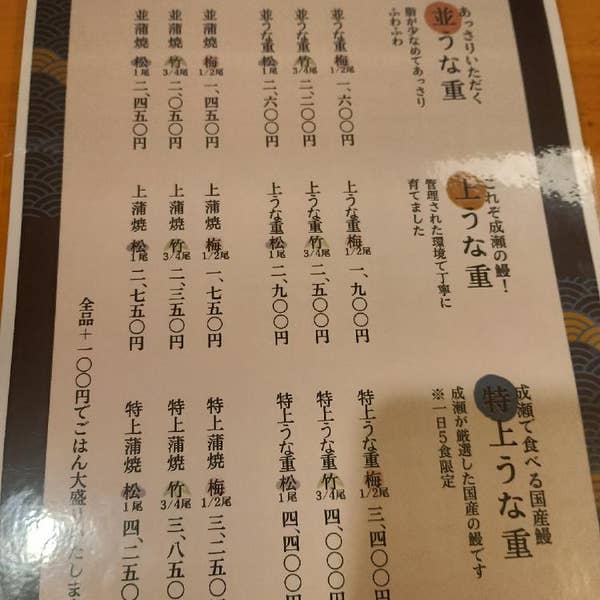 あっさりいただく
並うな重
脂が少なめであっさり
ふわふわ
並うな重 梅 1/2尾 一、六〇〇円
並うな重 竹 3/4尾 二、二〇〇円
並うな重 松 1尾 二、六〇〇円
並蒲焼 梅 1/2尾 一、四五〇円
並蒲焼 竹 3/4尾 二、〇五〇円
並蒲焼 松 1尾 二、四五〇円
これぞ成瀬の鰻！
上うな重
管理された環境で丁寧に
育てました
上うな重 梅 1/2尾 一、九〇〇円
上うな重 竹 3/4尾 二、五〇〇円
上うな重 松 1尾 二、九〇〇円
上蒲焼 梅 1/2尾 一、七五〇円
上蒲焼 竹 3/4尾 二、三五〇円
上蒲焼 松 1尾 二、七五〇円
成瀬で食べる国産鰻
特上うな重
成瀬が厳選した国産の鰻です
※一日5食限定
特上うな重 梅 1/2尾 三、四〇〇円
特上うな重 竹 3/4尾 四、〇〇〇円
特上うな重 松 1尾 四、四〇〇円
特上蒲焼 梅 1/2尾 三、二五〇円
特上蒲焼 竹 3/4尾 三、八五〇
特上蒲焼 松 1尾 四、二五〇
全品＋一〇〇円でごはん大盛りいたします